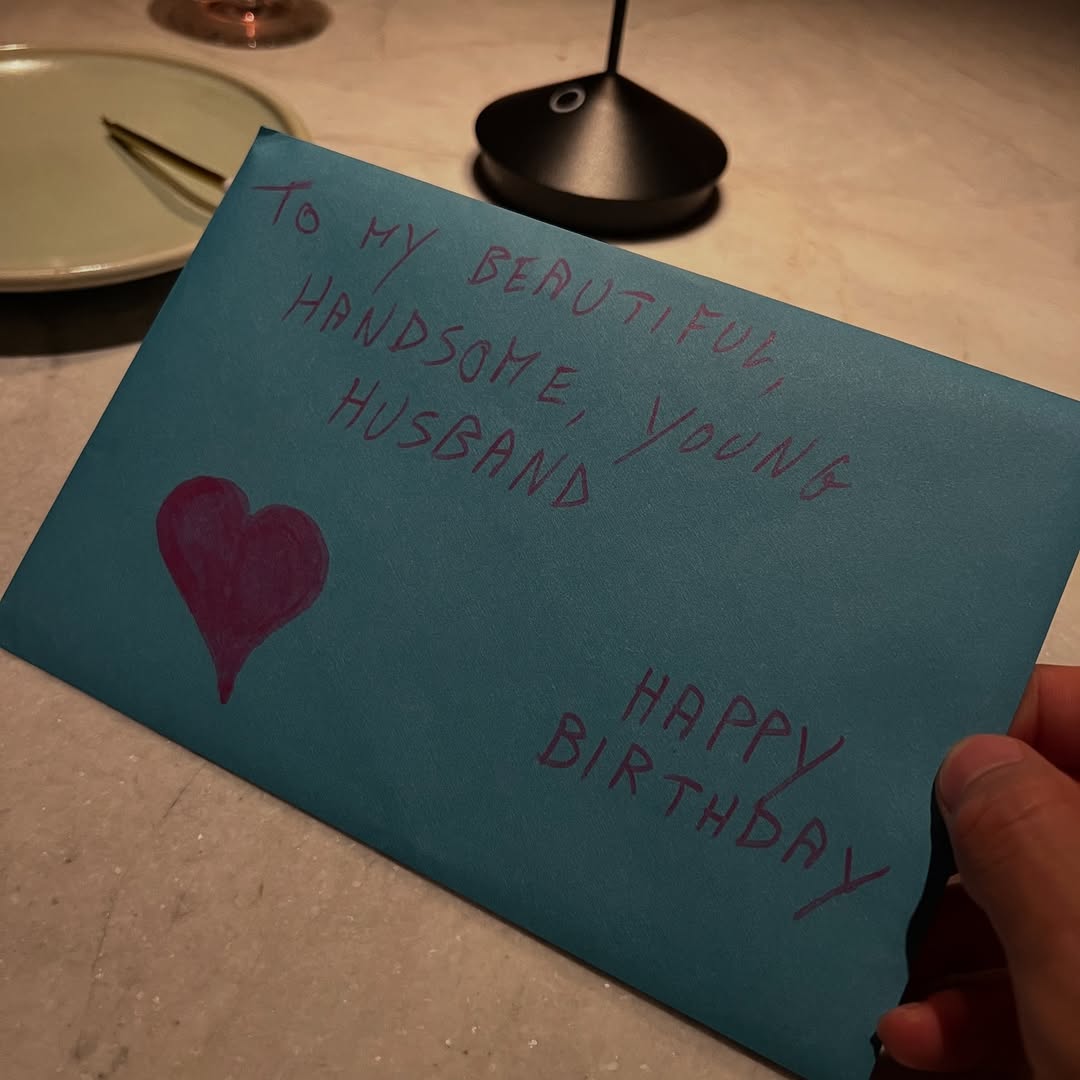 TO MY BEAUTIFUL,
HANDSOME, YOUNG
HUSBAND
HAPPY
BIRTHDAY